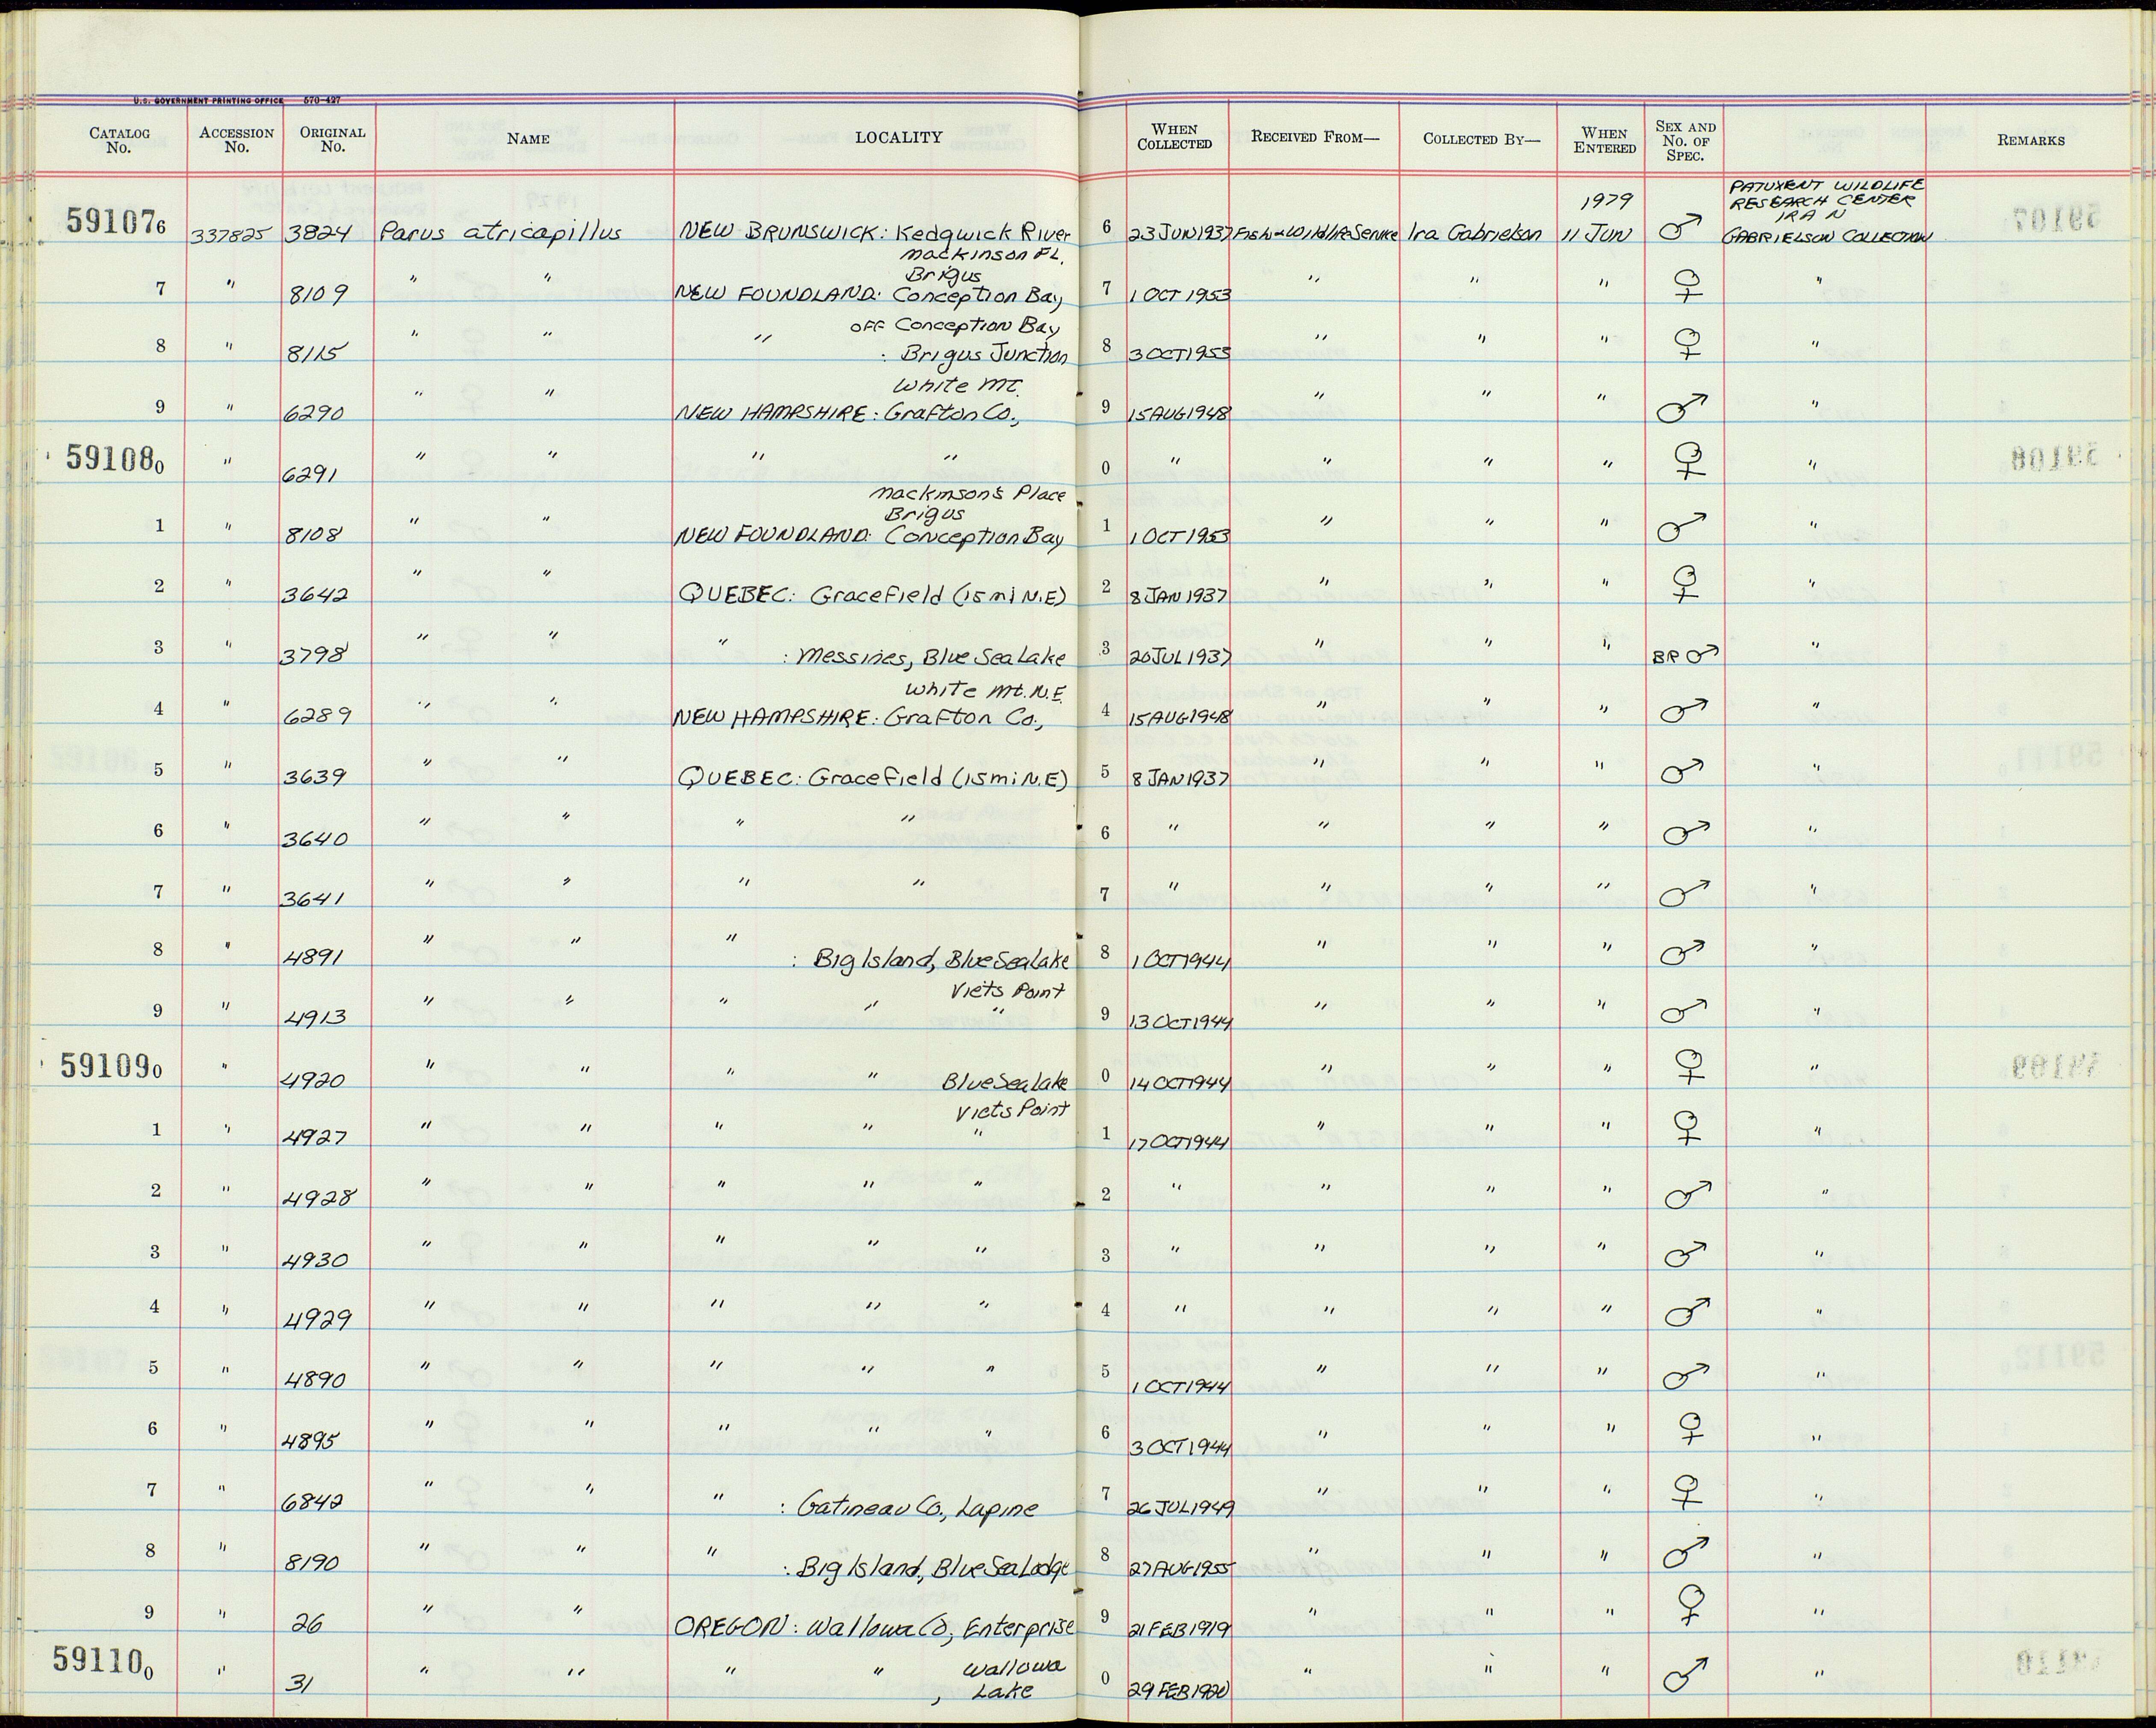 U.S. GOVERNMENT PRINTING OFFICE 570-427
CATALOG No. ACCESSION No. ORIGINAL No. NAME LOCALITY WHEN COLLECTED RECEIVED FROM— COLLECTED BY— WHEN ENTERED SEX AND No. OF SPEC. REMARKS
1979 PATUXENT WILDLIFE
RESEARCH CENTER
IRA N
591076 337825 3824 Parus atricapillus NEW BRUNSWICK: Kedgwick River 6 23 JUN 1937 Fish & Wildlife Service Ira Gabrielson 11 Jun ♂ GABRIELSON COLLECTION
Mackinson FL.
Brigus
7 " 8109 " " NEW FOUNDLAND: Conception Bay 7 1 OCT 1953 " " " ♀ "
OFF Conception Bay
8 " 8115 " " " : Brigus Junction 8 3 OCT 1953 " " " ♀ "
White Mt.
9 " 6290 " " NEW HAMPSHIRE: Grafton Co., 9 15 AUG 1948 " " " ♂ "
591080 " 6291 " " " " 0 " " " " ♀ "
Mackinson's Place
Brigus
1 " 8108 " " NEW FOUNDLAND: Conception Bay 1 1 OCT 1953 " " " ♂ "
2 " 3642 " " QUEBEC: Gracefield (15 mi N.E) 2 8 JAN 1937 " " " ♀ "
3 " 3798 " " " : Messines, Blue Sea Lake 3 20 JUL 1937 " " " BR ♂ "
White Mt. N.F.
4 " 6289 " " NEW HAMPSHIRE: Grafton Co., 4 15 AUG 1948 " " " ♂ "
5 " 3639 " " QUEBEC: Gracefield (15 mi N.E) 5 8 JAN 1937 " " " ♂ "
6 " 3640 " " " " 6 " " " " ♂ "
7 " 3641 " " " " 7 " " " " ♂ "
8 " 4891 " " " : Big Island, Blue Sea Lake 8 1 OCT 1944 " " " ♂ "
Viets Point
9 " 4913 " " " " " 9 13 OCT 1944 " " " ♂ "
591090 " 4920 " " " " Blue Sea Lake 0 14 OCT 1944 " " " ♀ "
Viets Point
1 " 4927 " " " " " 1 17 OCT 1944 " " " ♀ "
2 " 4928 " " " " " 2 " " " " ♂ "
3 " 4930 " " " " " 3 " " " " ♂ "
4 " 4929 " " " " " 4 " " " " ♂ "
5 " 4890 " " " " " 5 1 OCT 1944 " " " ♂ "
6 " 4895 " " " " " 6 3 OCT 1944 " " " ♀ "
7 " 6842 " " " : Gatineau Co., Lapine 7 26 JUL 1949 " " " ♀ "
8 " 8190 " " " : Big Island, Blue Sea Lodge 8 27 AUG 1955 " " " ♂ "
9 " 26 " " OREGON: Wallowa Co, Enterprise 9 21 FEB 1919 " " " ♀ "
Wallowa
591100 " 31 " " " " , Lake 0 29 FEB 1920 " " " ♂ "